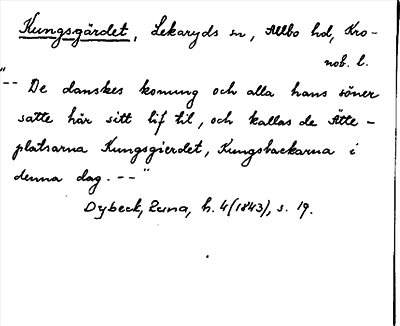 Kungsgärdet, Lekaryds sn, Allbo hd, Kro-
nob. l.
"-- De danskes konung och alla hans söner
satte här sitt lif til, och kallas de Ätte-
platsarna Kungsgierdet, Kungsbackarna i
denna dag. --"
Dybeck, Runa, h. 4 (1843), s. 19.